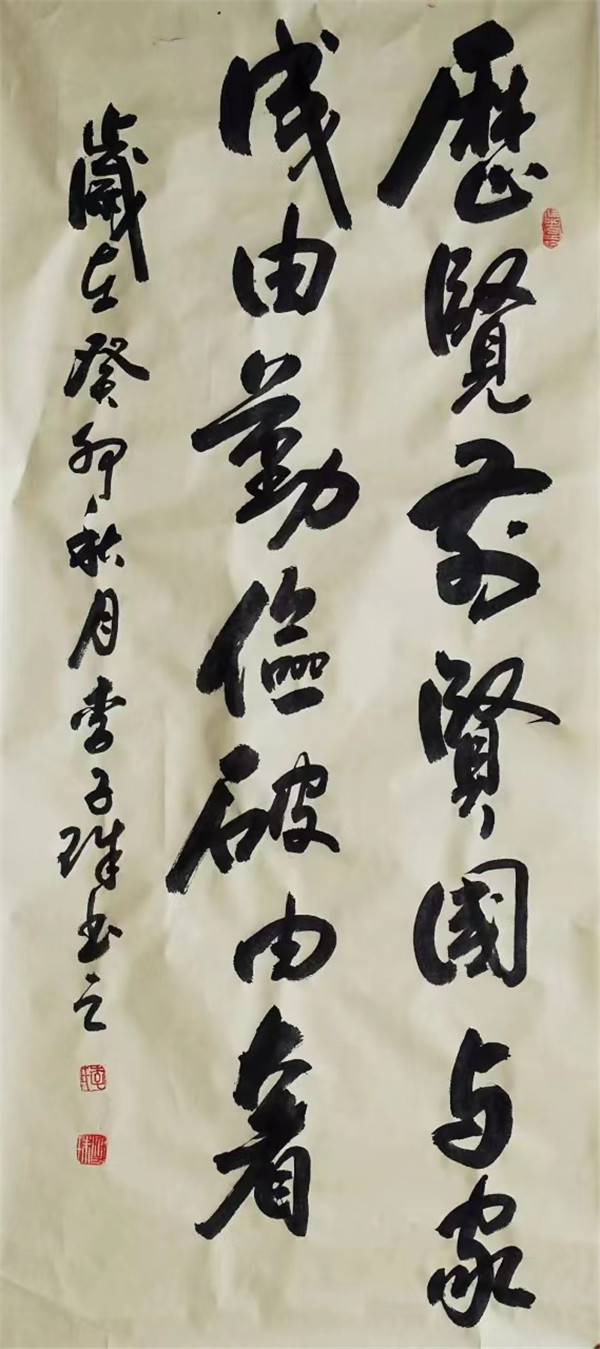 歷覽前賢國与家
成由勤儉破由奢
歲在癸卯秋月李子珠书之